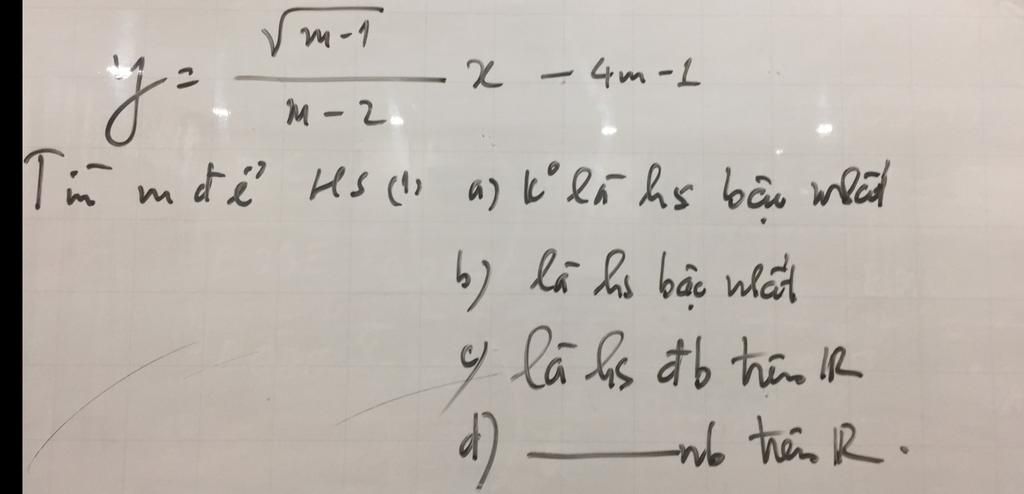 y = \frac{\sqrt{m-1}}{m-2} x - 4m - 1
Tìm m để HS (1) a) k° là hs bậc nhất
b) là hs bậc nhất
c) là hs đb trên R
d) ———nb trên R.